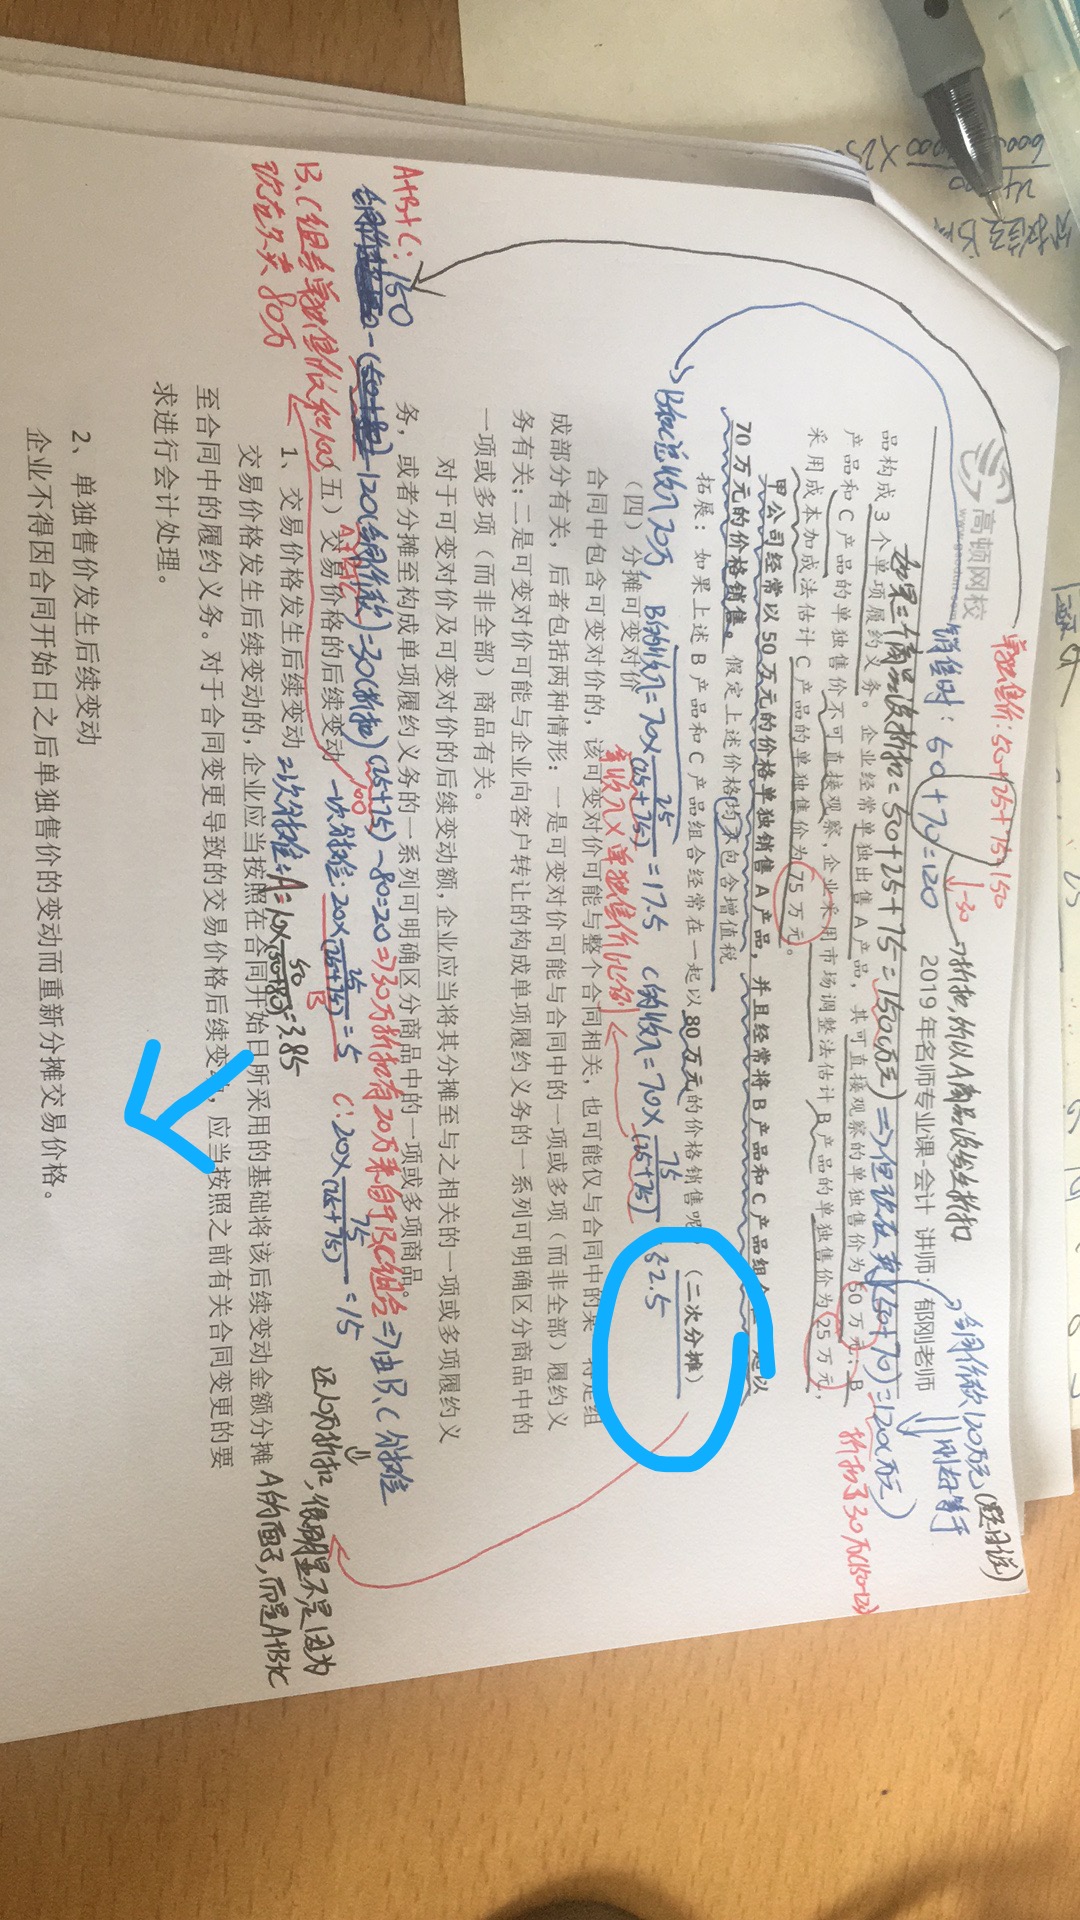 单独售价:50+25+75=150
-30
销售时:50+70=120
→有折扣,所以A商品没发生折扣
合同价款120万元(题目说)
刚好等于
高顿网校
www.gaodun.com
2019 年名师专业课-会计 讲师:郁刚老师
如果三个商品没折扣=50+25+75=150(万元)=>但现在卖(50+70)=120(万元)
折扣了30万(150-120)
品构成 3 个单项履约义务。企业经常单独出售 A 产品,其可直接观察的单独售价为 50 万元;B
产品和 C 产品的单独售价不可直接观察,企业采用市场调整法估计 B 产品的单独售价为 25 万元,
采用成本加成法估计 C 产品的单独售价为 75 万元。
甲公司经常以 50 万元的价格单独销售 A 产品,并且经常将 B 产品和 C 产品组合在一起以
70 万元的价格销售。假定上述价格均不包含增值税
拓展:如果上述 B 产品和 C 产品组合经常在一起以 80 万元的价格销售呢
(二次分摊)
B和C总收入70万
B的收入=70×25/(25+75)=17.5
C的收入=70×75/(25+75)
52.5
总收入×单独售价比例
(四)分摊可变对价
合同中包含可变对价的,该可变对价可能与整个合同相关,也可能仅与合同中的某一特定组
成部分有关,后者包括两种情形:一是可变对价可能与合同中的一项或多项(而非全部)履约义
务有关;二是可变对价可能与企业向客户转让的构成单项履约义务的一系列可明确区分商品中的
一项或多项(而非全部)商品有关。
对于可变对价及可变对价的后续变动额,企业应当将其分摊至与之相关的一项或多项履约义
务,或者分摊至构成单项履约义务的一系列可明确区分商品中的一项或多项商品。
A+B+C:150
-120(合同价款)=30(折扣)
(25+75)-80=20=>30万折扣有20万来自于B,C组合=>由B,C分摊
100
B、C组合单独售价和100
现在只卖80万
(五)交易价格的后续变动
一次分摊:20×25/(25+75)=5
B
C:20×75/(25+75)=15
还10万折扣,很明显不是因为
A的面子,而是A+B+C
1、交易价格发生后续变动
二次分摊:A=10×50/(50+80)=3.85
交易价格发生后续变动的,企业应当按照在合同开始日所采用的基础将该后续变动金额分摊
至合同中的履约义务。对于合同变更导致的交易价格后续变动,应当按照之前有关合同变更的要
求进行会计处理。
2、单独售价发生后续变动
企业不得因合同开始日之后单独售价的变动而重新分摊交易价格。